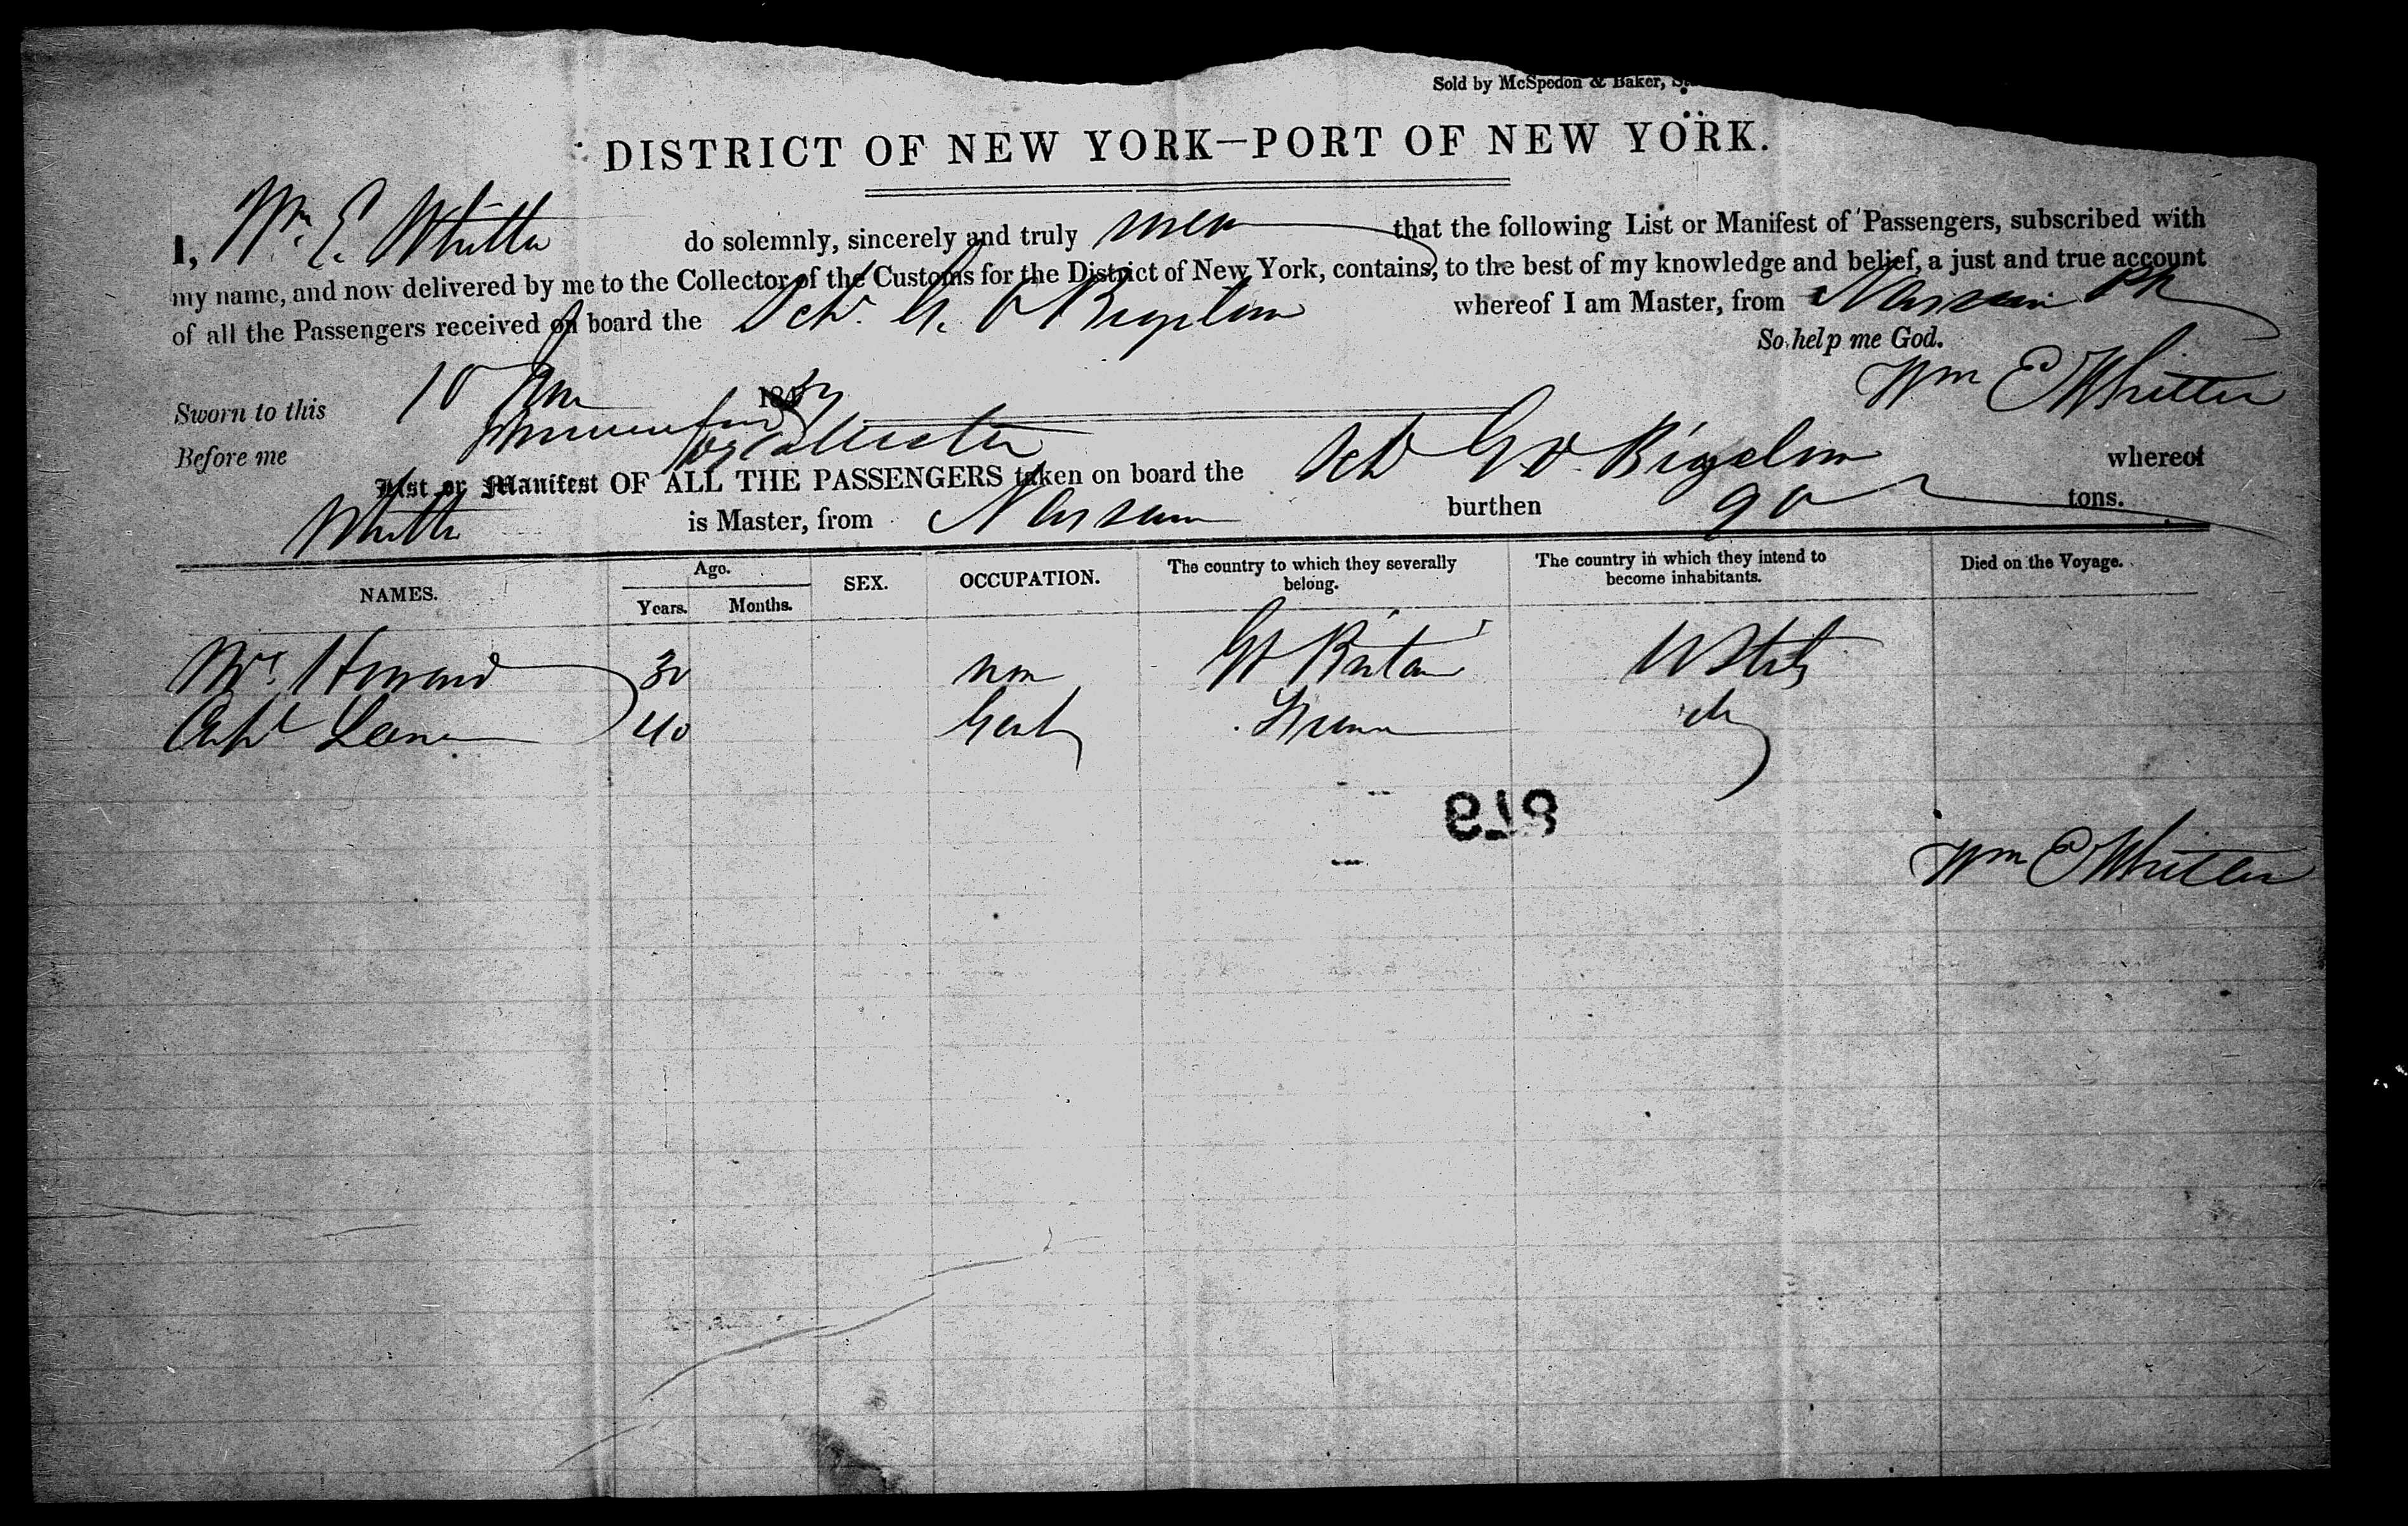 Sold by McSpedon & Baker,
DISTRICT OF NEW YORK—PORT OF NEW YORK.
I, Wm. E. Whitter do solemnly, sincerely and truly swear that the following List or Manifest of Passengers, subscribed with
my name, and now delivered by me to the Collector of the Customs for the District of New York, contains, to the best of my knowledge and belief, a just and true account
of all the Passengers received on board the Schr. G. V Bigelow whereof I am Master, from Nassau
So help me God.
Wm E Whitter
Sworn to this 10 184
Before me for Collector
List or Manifest OF ALL THE PASSENGERS taken on board the Sch G V Bigelow whereof
Whitter is Master, from Nassau burthen 90 tons.
NAMES. Age. Years. Months. SEX. OCCUPATION. The country to which they severally belong. The country in which they intend to become inhabitants. Died on the Voyage.
Mrs Howard 30 non Gt Britain U States
Capt Lane 40 Gent do
819
Wm E Whitter